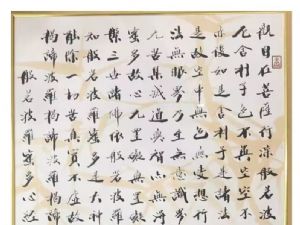 觀自在菩薩行深般若波
舍利子色不異空空不
亦復如是舍利子是諸法
是故空中無色無受想行
法無眼界乃無意識界
無苦集滅道無
多故心無
三世諸佛依般若波羅
知般若波羅蜜多是大神
能除一切苦真實不虛故
揭諦揭諦波羅揭諦
般若波羅蜜多心經